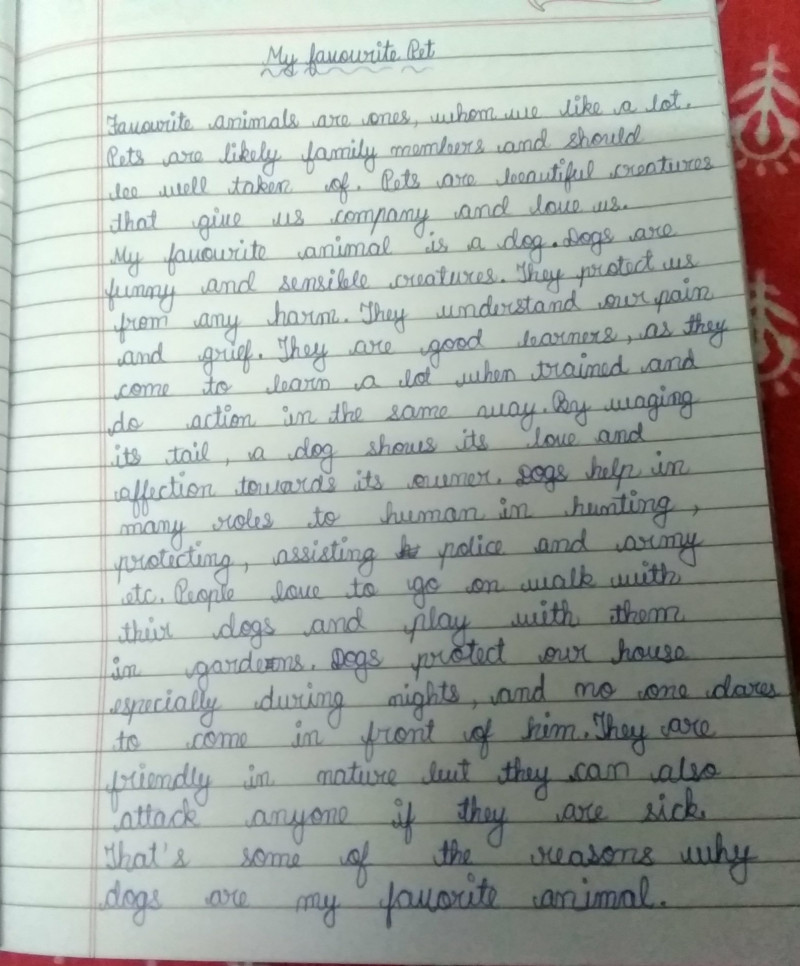 My favourite Pet
Favourite animals are ones, whom we like a lot.
Pets are likely family members and should
be well taken of. Pets are beautiful creatures
that give us company and love us.
My favourite animal is a dog. Dogs are
funny and sensible creatures. They protect us
from any harm. They understand our pain
and grief. They are good learners, as they
come to learn a lot when trained and
do action in the same way. By waging
its tail, a dog shows its love and
affection towards its owner. Dogs help in
many roles to human in hunting,
protecting, assisting police and army
etc. People love to go on walk with
their dogs and play with them
in gardens. Dogs protect our house
especially during nights, and no one dares
to come in front of him. They are
friendly in nature but they can also
attack anyone if they are sick.
That's some of the reasons why
dogs are my favorite animal.